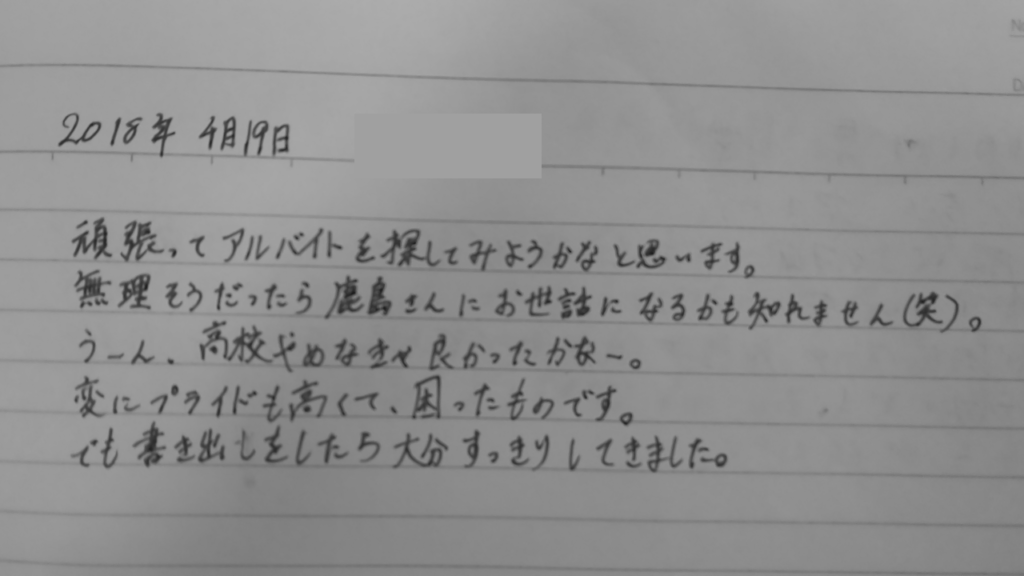 2018年 4月19日
頑張ってアルバイトを探してみようかなと思います。
無理そうだったら鹿島さんにお世話になるかも知れません(笑)。
うーん、高校やめなきゃ良かったかなー。
変にプライドも高くて、困ったものです。
でも書き出しをしたら大分すっきりしてきました。